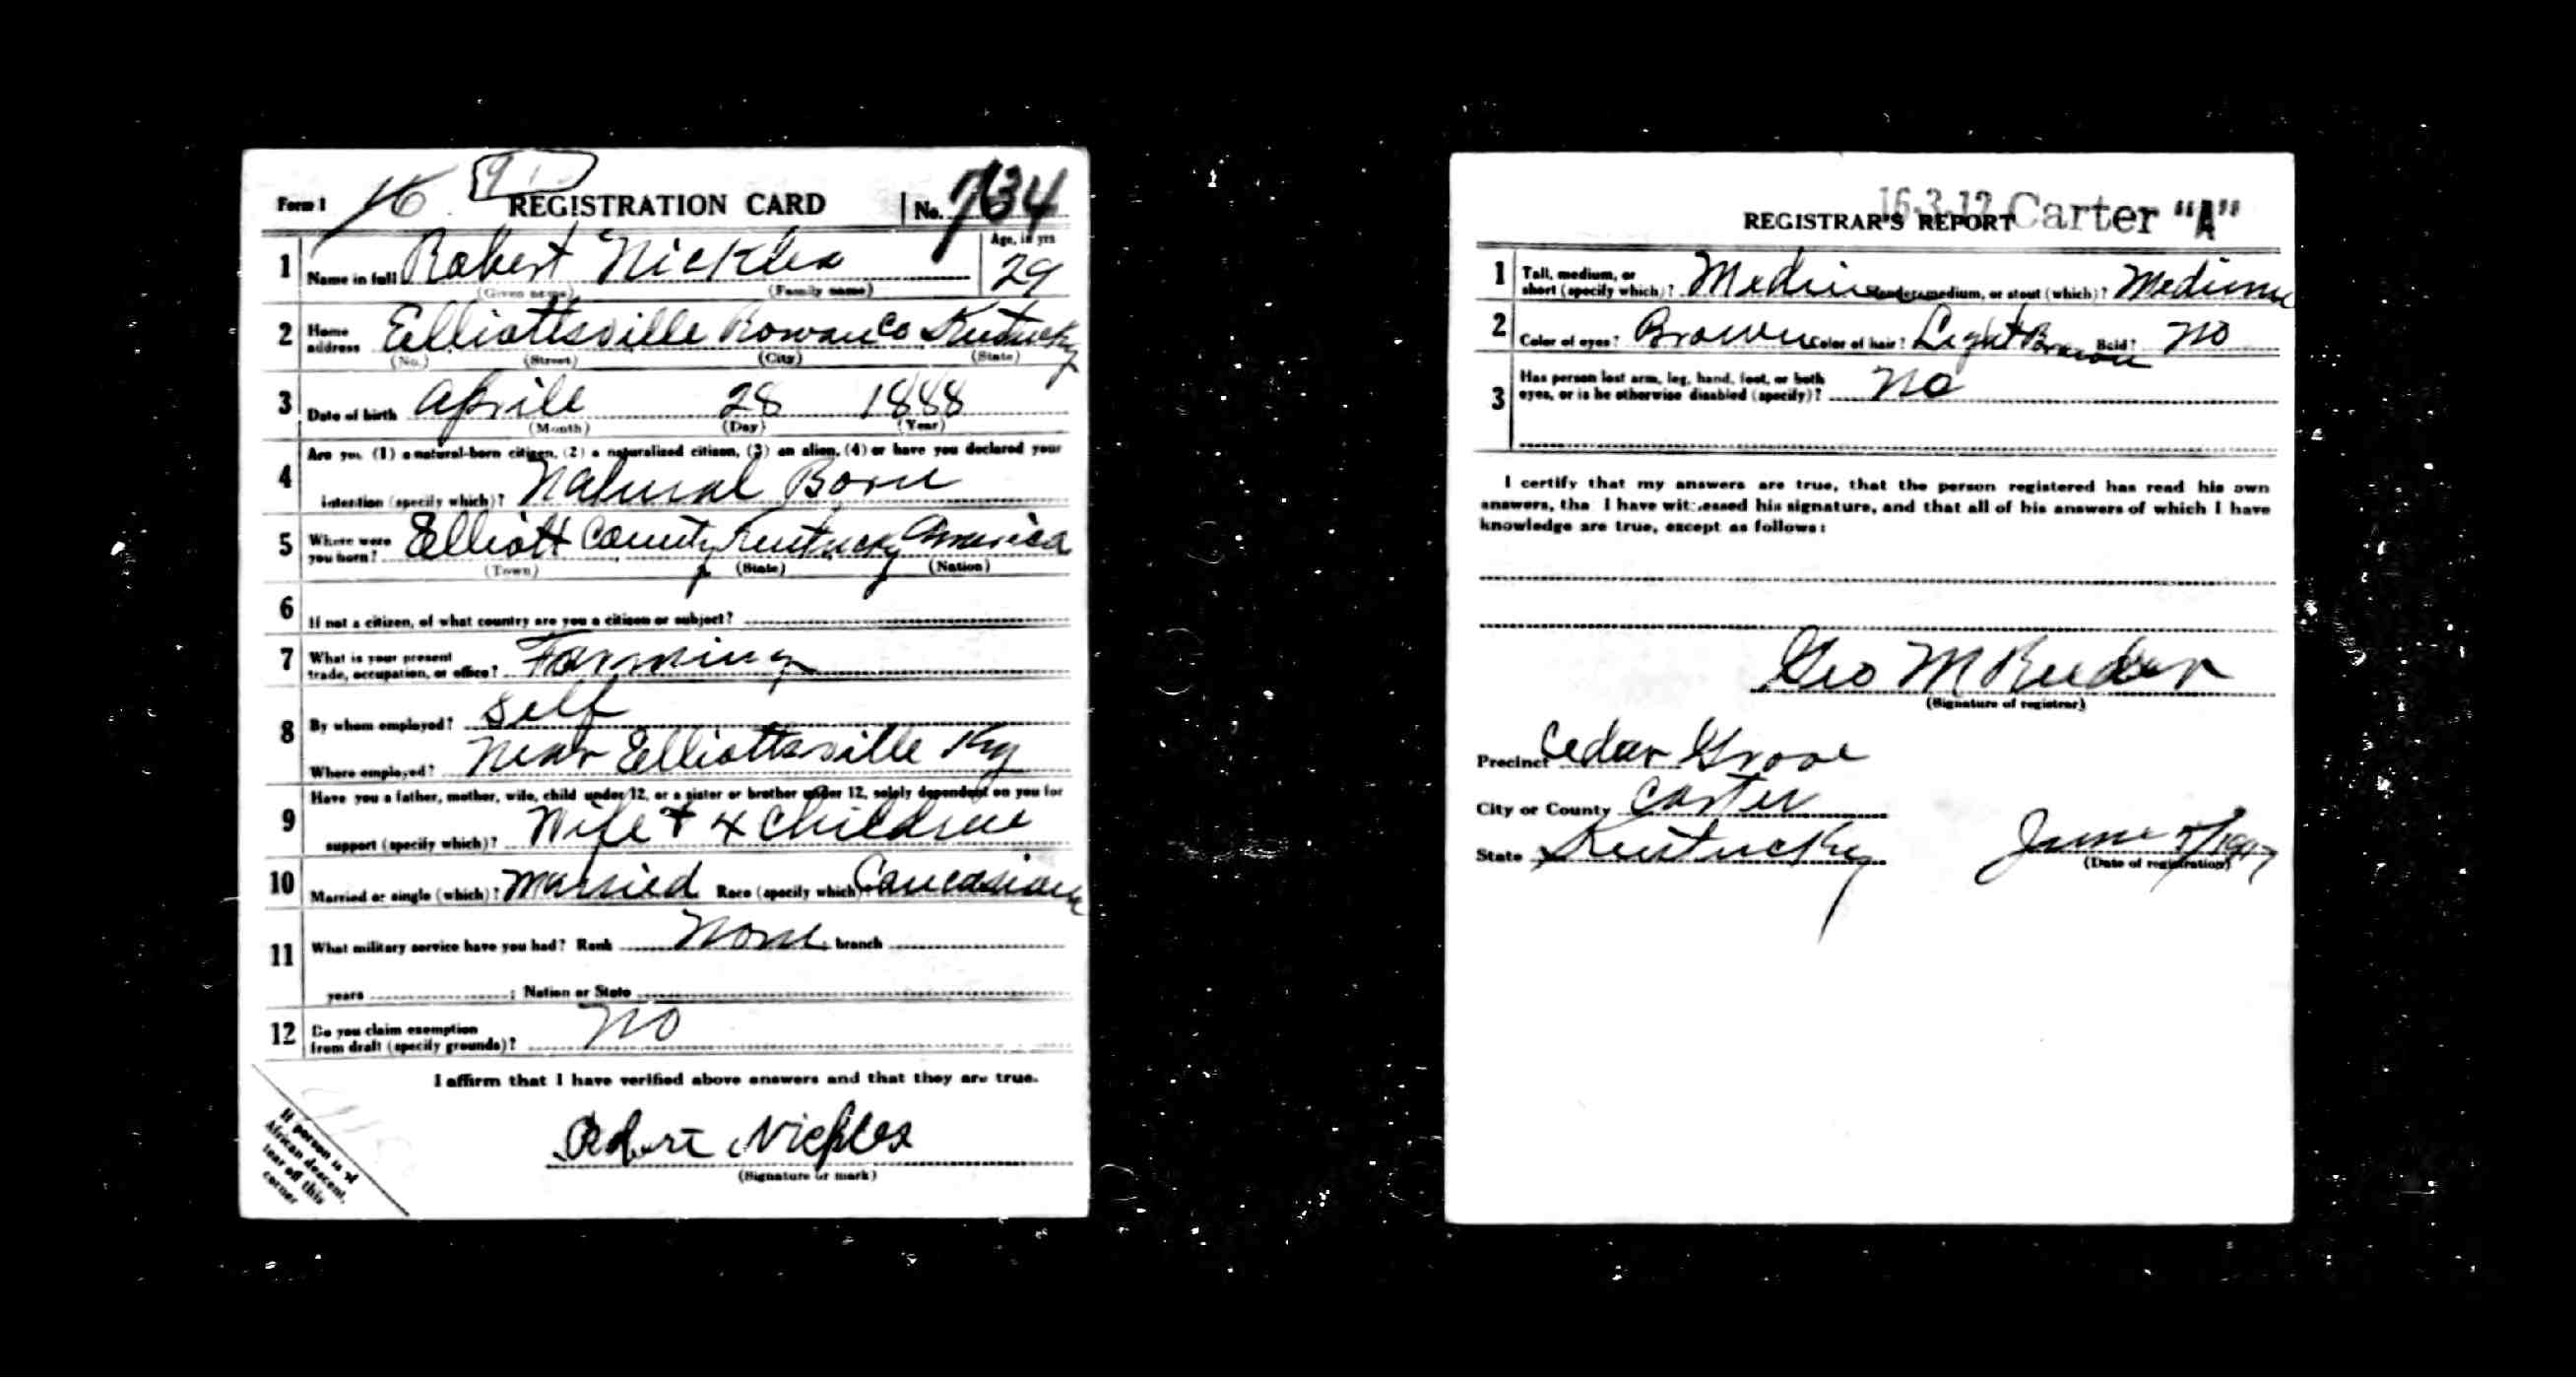 Form 1 16 REGISTRATION CARD No. 734
1 Name in full Robert Nickles Age, in yrs 29
(Given name) (Family name)
2 Home address Elliottsville Rowan Co Kentucky
(No.) (Street) (City) (State)
3 Date of birth Aprile 28 1888
(Month) (Day) (Year)
Are you (1) a natural-born citizen, (2) a naturalized citizen, (3) an alien, (4) or have you declared your
4 intention (specify which)? Natural Born
5 Where were you born? Elliott County, Kentucky America
(Town) (State) (Nation)
6 If not a citizen, of what country are you a citizen or subject?
7 What is your present trade, occupation, or office? Farming
8 By whom employed? Self
Where employed? Near Elliottsville Ky
Have you a father, mother, wife, child under 12, or a sister or brother under 12, solely dependent on you for
9 support (specify which)? Wife + 4 Children
10 Married or single (which)? Married Race (specify which) Caucasian
11 What military service have you had? Rank None branch
years ; Nation or State
12 Do you claim exemption from draft (specify grounds)? No
I affirm that I have verified above answers and that they are true.
Robert Nickles
(Signature or mark)
If person is of
African descent,
tear off this
corner
16-3-12 Carter "A"
REGISTRAR'S REPORT
1 Tall, medium, or short (specify which)? Medium Slender, medium, or stout (which)? Medium
2 Color of eyes? Brown Color of hair? Light Brown Bald? No
3 Has person lost arm, leg, hand, foot, or both
eyes, or is he otherwise disabled (specify)? No
I certify that my answers are true, that the person registered has read his own
answers, tha I have witnessed his signature, and that all of his answers of which I have
knowledge are true, except as follows:
Geo M Reeder
(Signature of registrar)
Precinct Cedar Grove
City or County Carter
State Kentucky June 5/1917
(Date of registration)